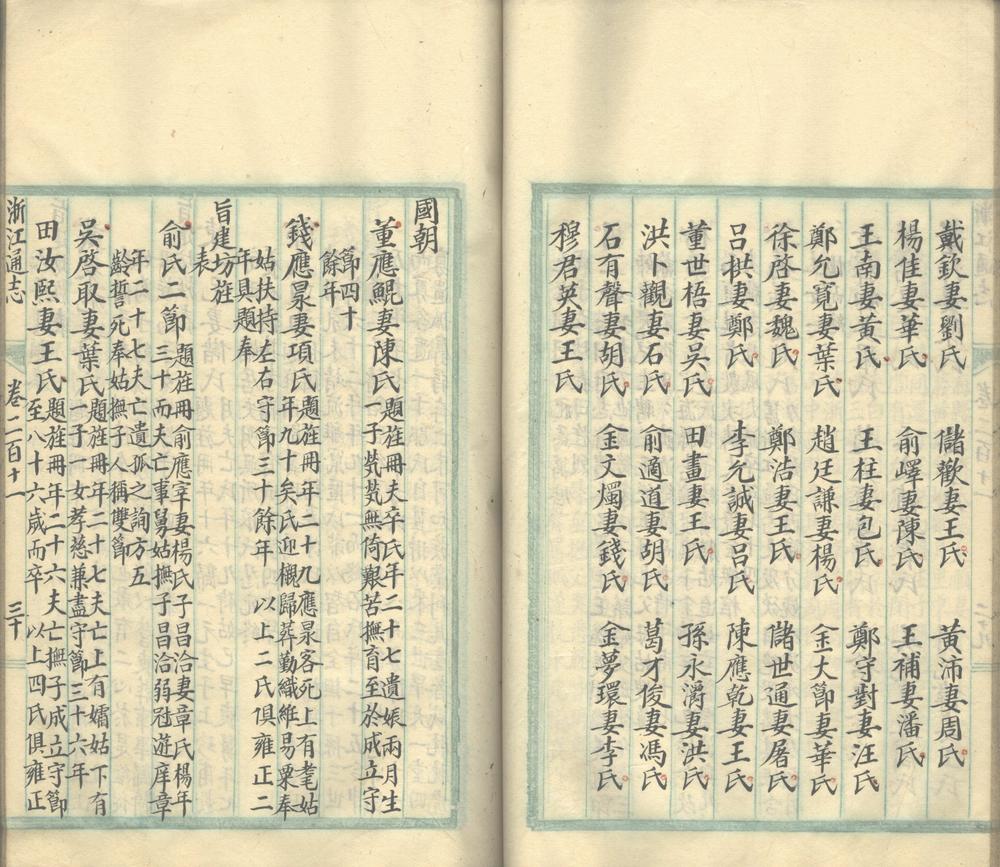 戴欽妻劉氏 儲歡妻王氏 黃沛妻周氏
楊佳妻華氏 俞嶧妻陳氏 王補妻潘氏
王南妻黃氏 王柱妻包氏 鄭守對妻汪氏
鄭允寬妻葉氏 趙廷謙妻楊氏 金大節妻華氏
徐啓妻魏氏 鄭浩妻王氏 儲世通妻屠氏
呂拱妻鄭氏 李允誠妻呂氏 陳應乾妻王氏
董世梧妻吳氏 田畫妻王氏 孫永濳妻洪氏
洪卜觀妻石氏 俞適道妻胡氏 葛才俊妻馮氏
石有聲妻胡氏 金文燭妻錢氏 金夢環妻李氏
穆君英妻王氏
國朝
董應鯤妻陳氏題旌冊夫卒氏年二十七遺娠兩月生
子煢煢無倚艱苦撫育至於成立守
節四十
餘年
錢應晁妻項氏題旌冊年二十九應晁客死上有耄姑
年九十矣氏迎櫬歸葬勤織維易粟奉
姑扶持左右守節三十餘年 以上二氏俱雍正二
年具題奉
旨建坊旌
表
俞氏二節題旌冊俞應宰妻楊氏子昌洽妻章氏楊年
三十而夫亡事舅姑撫子昌洽弱冠遊庠章
年二十七夫亡遺孤之詢方五
齡誓死奉姑撫子人稱雙節
吳啓取妻葉氏題旌冊年二十七夫亡上有孀姑下有
一子一女孝慈兼盡守節三十六年
田汝熙妻王氏題旌冊年二十六夫亡撫子成立守節
至八十六歲而卒 以上四氏俱雍正
浙江通志 卷二百十一 三十